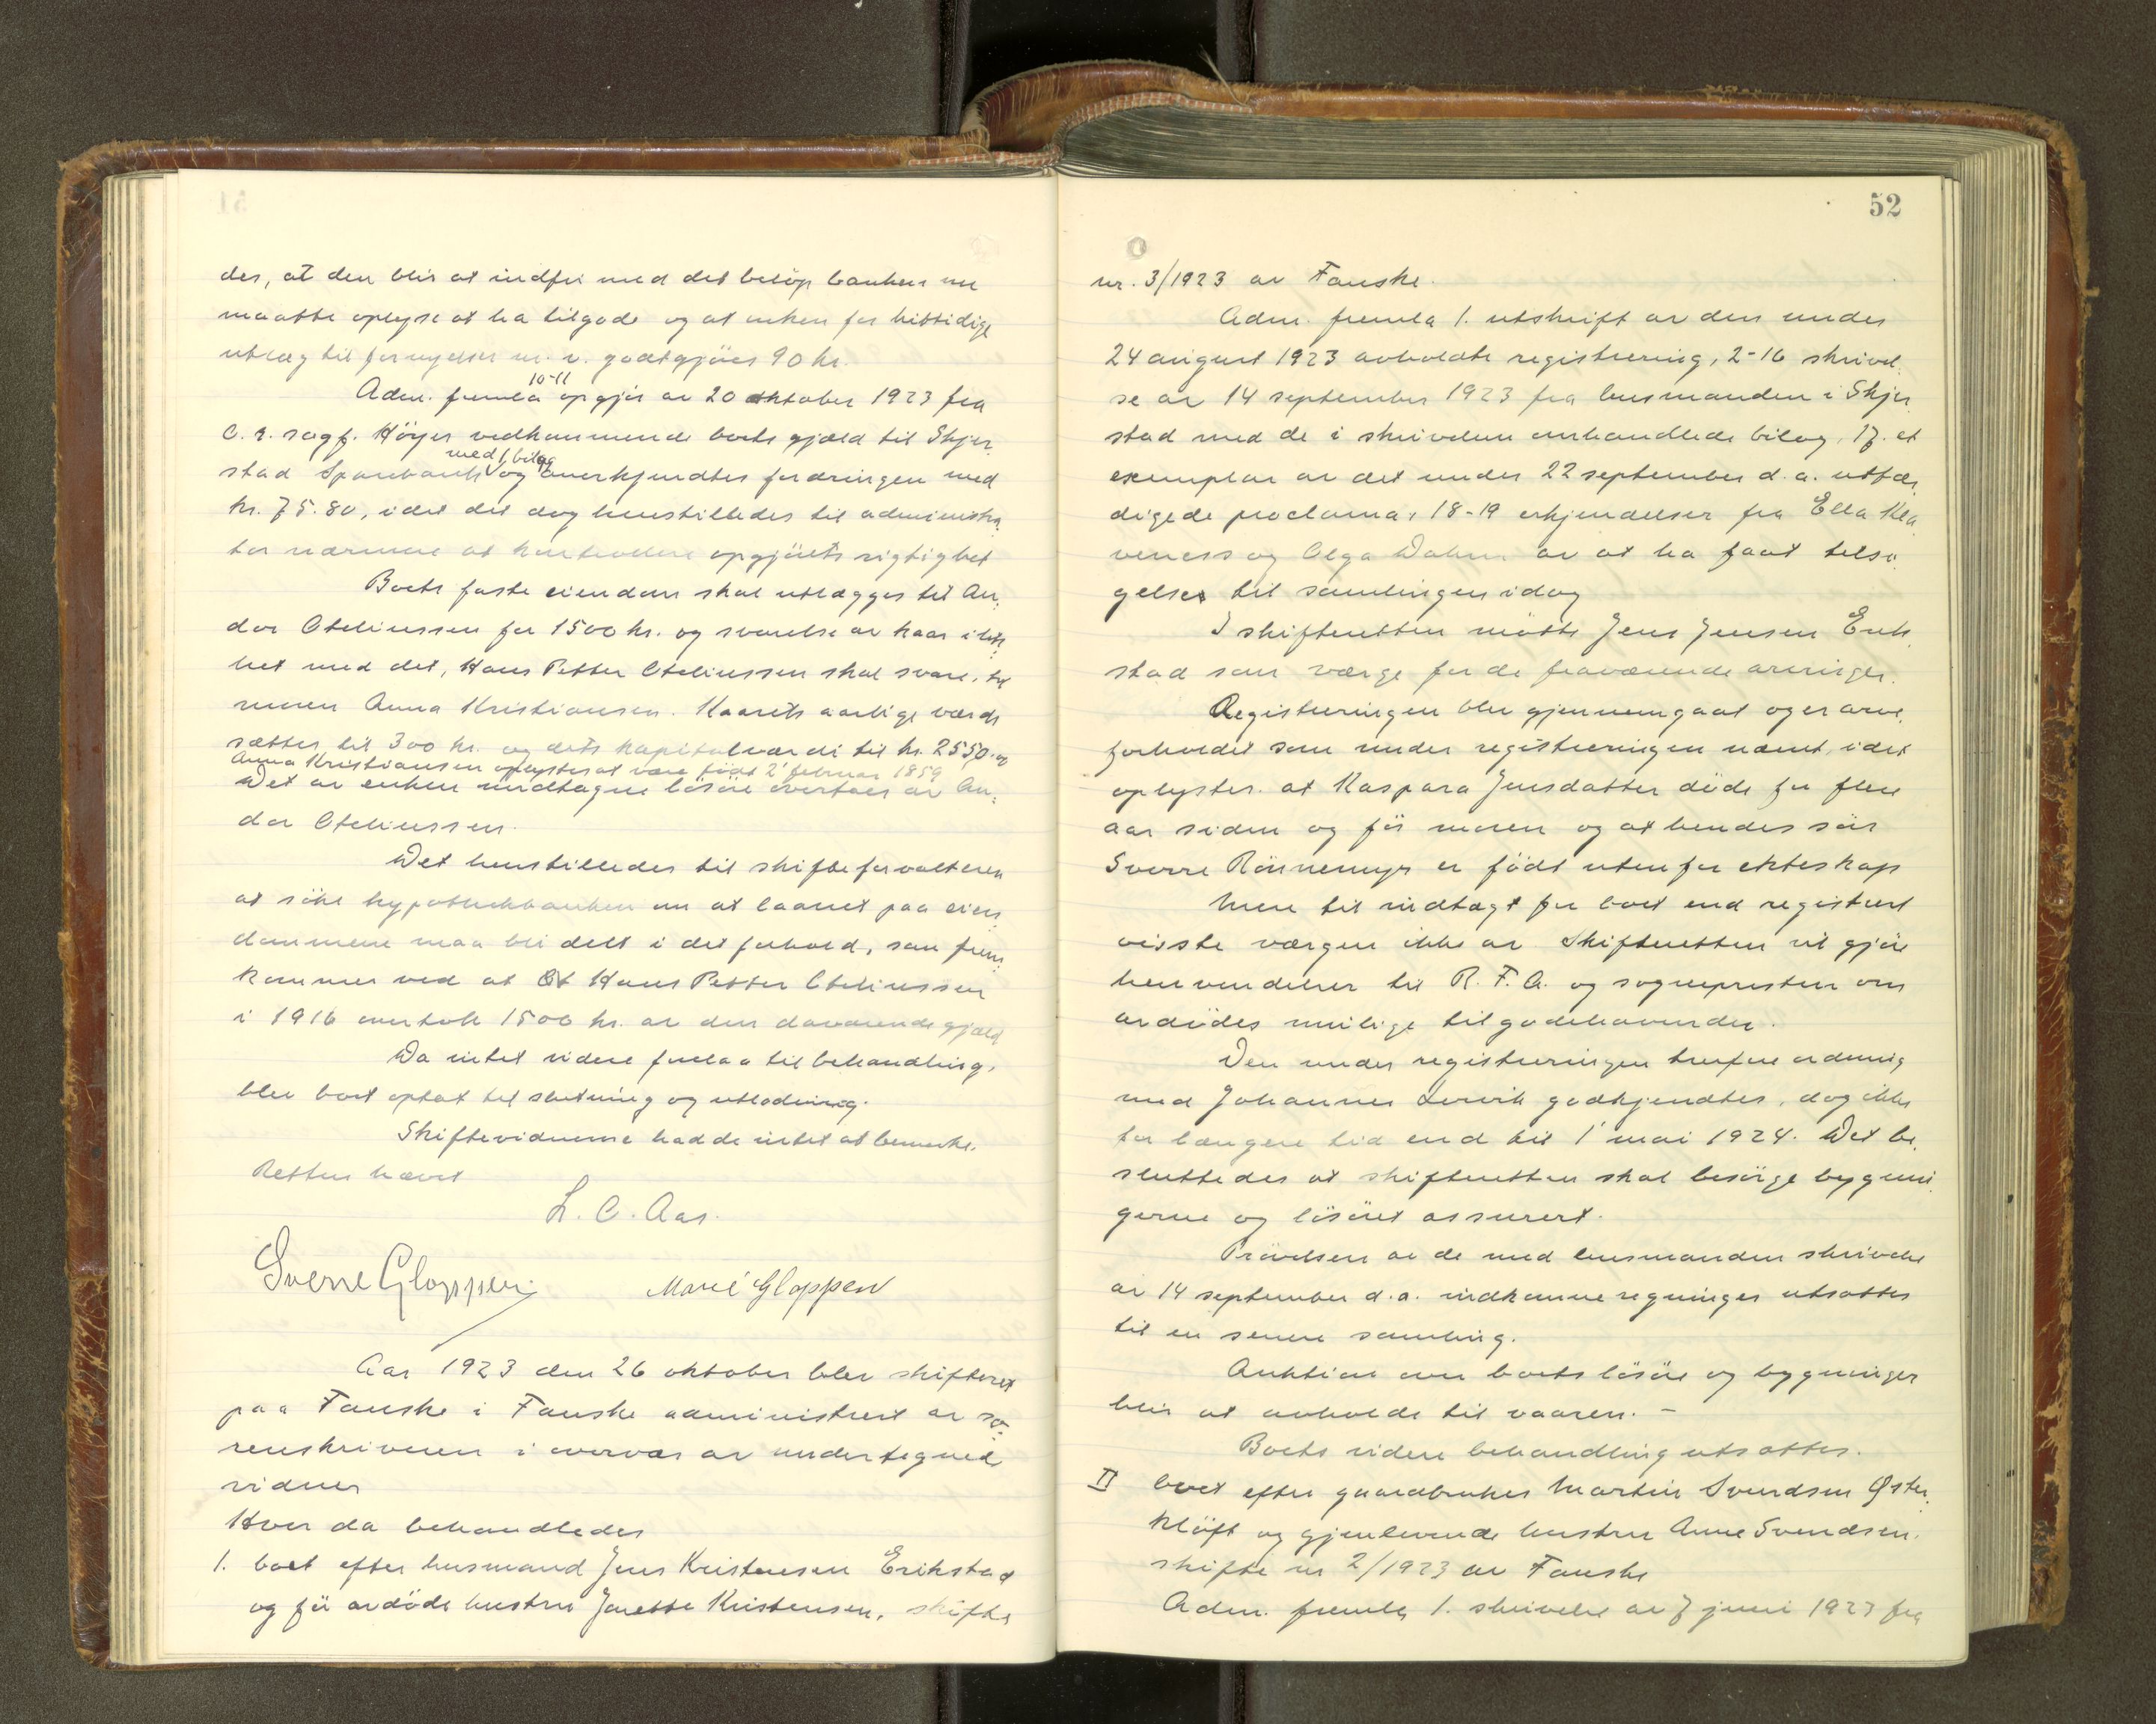 des, at den blir at indfri med det beløp banken nu
maatte oplyse at ha tilgode og at enken for hittidige
utlæg til fornyelser m. v. godtgjøres 90 kr.
10-11
Adm. fremla opgjør av 20 oktober 1923 fra
O. r. sagf. Høyer vedkommende boets gjæld til Skjer-
med 1 bilag
stad Sparebank og anerkjendtes fordringen med
kr. 75.80, idet det dog henstilledes til administra-
tor nærmere at kontrollere opgjørets rigtighet
Boets faste eiendom skal utlægges til An-
dor Oteliussen for 1500 kr. og svarelse av kaar i lik-
het med det, Hans Petter Oteliussen skal svare, til
moren Anna Kristiansen. Kaarets aarlige værdi
sættes til 300 kr. og dets kapitalværdi til kr. 2550. og
Anna Kristiansen oplystes at være født 2' februar 1859
Det av enken undtagne løsøre overtaes av An-
dor Oteliussen.
Det henstilledes til skifteforvalteren
at søke hypothekbanken om at laanet paa eien-
dommene maa bli delt i det forhold, som frem-
kommer ved at Hans Petter Oteliussen
i 1916 overtok 1500 kr. av den daværende gjæld
Da intet videre forelaa til behandling,
blev boet optat til slutning og utlodning.
Skiftevidnerne hadde intet at bemerke.
Retten hævet
L. C. Aas.
Sverre Gloppen
Marie Gloppen
Aar 1923 den 26 oktober blev skifteret
paa Fauske i Fauske administrert av so-
renskriveren i overvær av undertegned
vidner
Hvor da behandledes
1. boet efter husmand Jens Kristensen Erikstad
og før avdøde hustru Janette Kristensen, skifte
52
nr. 3/1923 av Fauske.
Adm. fremla 1. utskrift av den under
24 august 1923 avholdte registrering, 2-16 skrivel-
se av 14 september 1923 fra lensmanden i Skjer-
stad med de i skrivelsen omhandlede bilag, 17. et
exemplar av det under 22 september d. a. utfær-
digede proclama, 18-19 erkjendelser fra Ella Kla-
veness og Olga Dahm av at ha faat tilsi-
gelse til samlingen idag
I skifteretten møtte Jens Jensen Erik-
stad som værge for de fraværende arvinger.
Registreringen blev gjennemgaat og er arve-
forholdet som under registreringen nævnt, idet
oplystes. at Kaspara Jensdatter døde for flere
aar siden og før moren og at hendes søn
Sverre Rønnemyr er født utenfor ekteskap
Mere til indtægt for boet end registrert
visste værgen ikke av. Skifteretten vil gjøre
henvendelser til R. F. A. og sognepresten om
avdødes mulige tilgodehavender.
Den under registreringen trufne ordning
med Johannes Lervik godkjendtes, dog ikke
for længere tid end til 1' mai 1924. Det be-
sluttedes at skifteretten skal besørge bygnin-
gerne og løsøret assurert.
Prøvelsen av de med lensmanden skrivelse
av 14 september d. a. indkomne regninger utsattes
til en senere samling.
Auktion over boets løsøre og bygninger
blir at avholde til vaaren. -
Boets videre behandling utsattes.
II boet efter gaardbruker Martin Svendsen Øster-
kløft og gjenlevende hustru Anne Svendsen.
skifte nr 2/1923 av Fauske
Adm. fremla 1. skrivelse av 7 juni 1923 fra